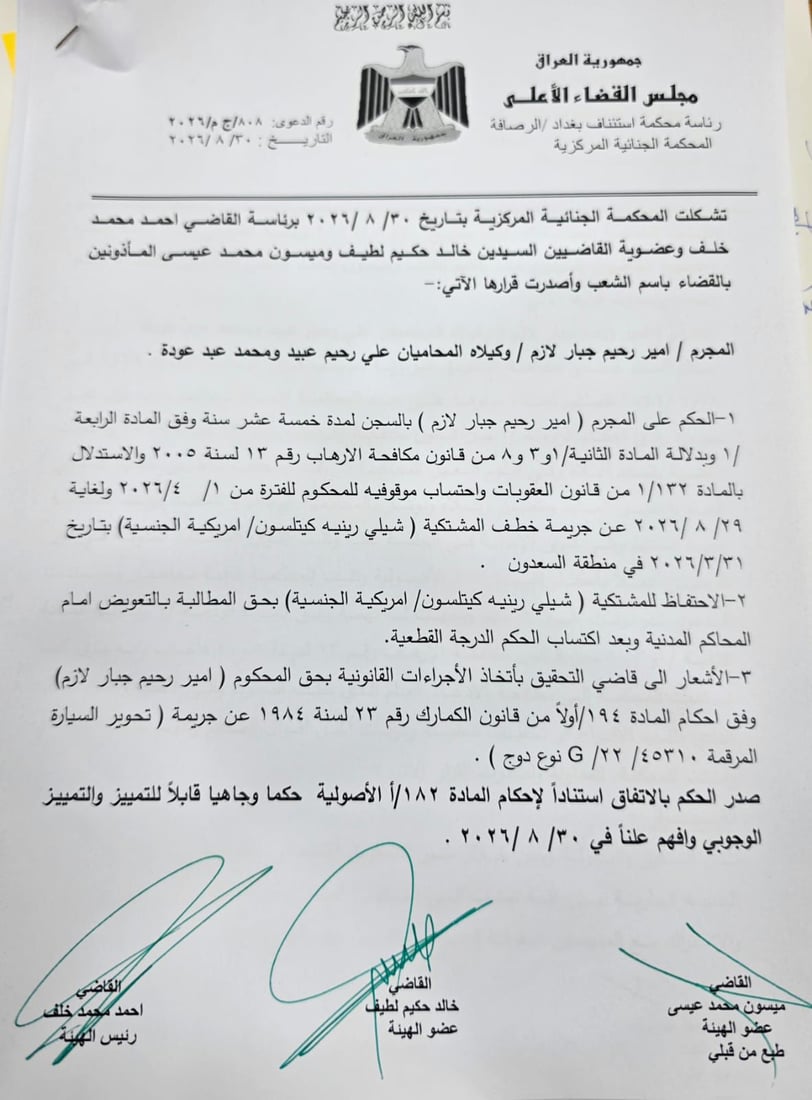 بسم الله الرحمن الرحيم
جمهورية العراق
مجلس القضاء الأعلى
رئاسة محكمة استئناف بغداد /الرصافة
المحكمة الجنائية المركزية
رقم الدعوى: ٨٠٨/ج م/٢٠٢٦
التاريخ : ٣٠/ ٨ /٢٠٢٦
جمهورية العراق
تشكلت المحكمة الجنائية المركزية بتاريخ ٣٠/ ٨ /٢٠٢٦ برئاسة القاضي احمد محمد
خلف وعضوية القاضيين السيدين خالد حكيم لطيف وميسون محمد عيسى المأذونين
بالقضاء باسم الشعب وأصدرت قرارها الآتي:-
المجرم / امير رحيم جبار لازم / وكيلاه المحاميان علي رحيم عبيد ومحمد عبد عودة .
١-الحكم على المجرم ( امير رحيم جبار لازم ) بالسجن لمدة خمسة عشر سنة وفق المادة الرابعة
/١ وبدلالة المادة الثانية/١و٣ و٨ من قانون مكافحة الارهاب رقم ١٣ لسنة ٢٠٠٥ والاستدلال
بالمادة ١/١٣٢ من قانون العقوبات واحتساب موقوفيه للمحكوم للفترة من ١/ ٢٠٢٦/٤ ولغاية
٢٩/ ٨ /٢٠٢٦ عن جريمة خطف المشتكية ( شيلي رينيه كيتلسون/ امريكية الجنسية) بتاريخ
٢٠٢٦/٣/٣١ في منطقة السعدون .
٢-الاحتفاظ للمشتكية ( شيلي رينيه كيتلسون/ امريكية الجنسية) بحق المطالبة بالتعويض امام
المحاكم المدنية وبعد اكتساب الحكم الدرجة القطعية.
٣-الأشعار الى قاضي التحقيق بأتخاذ الأجراءات القانونية بحق المحكوم ( امير رحيم جبار لازم)
وفق احكام المادة ١٩٤/أولاً من قانون الكمارك رقم ٢٣ لسنة ١٩٨٤ عن جريمة ( تحوير السيارة
المرقمة ٤٥٣١٠/ G /٢٢ نوع دوج ) .
صدر الحكم بالاتفاق استناداً لإحكام المادة ١٨٢/أ الأصولية حكما وجاهيا قابلاً للتمييز والتمييز
الوجوبي وافهم علناً في ٣٠/ ٨ /٢٠٢٦ .
القاضي
ميسون محمد عيسى
عضو الهيئة
طبع من قبلي
القاضي
خالد حكيم لطيف
عضو الهيئة
القاضي
احمد محمد خلف
رئيس الهيئة